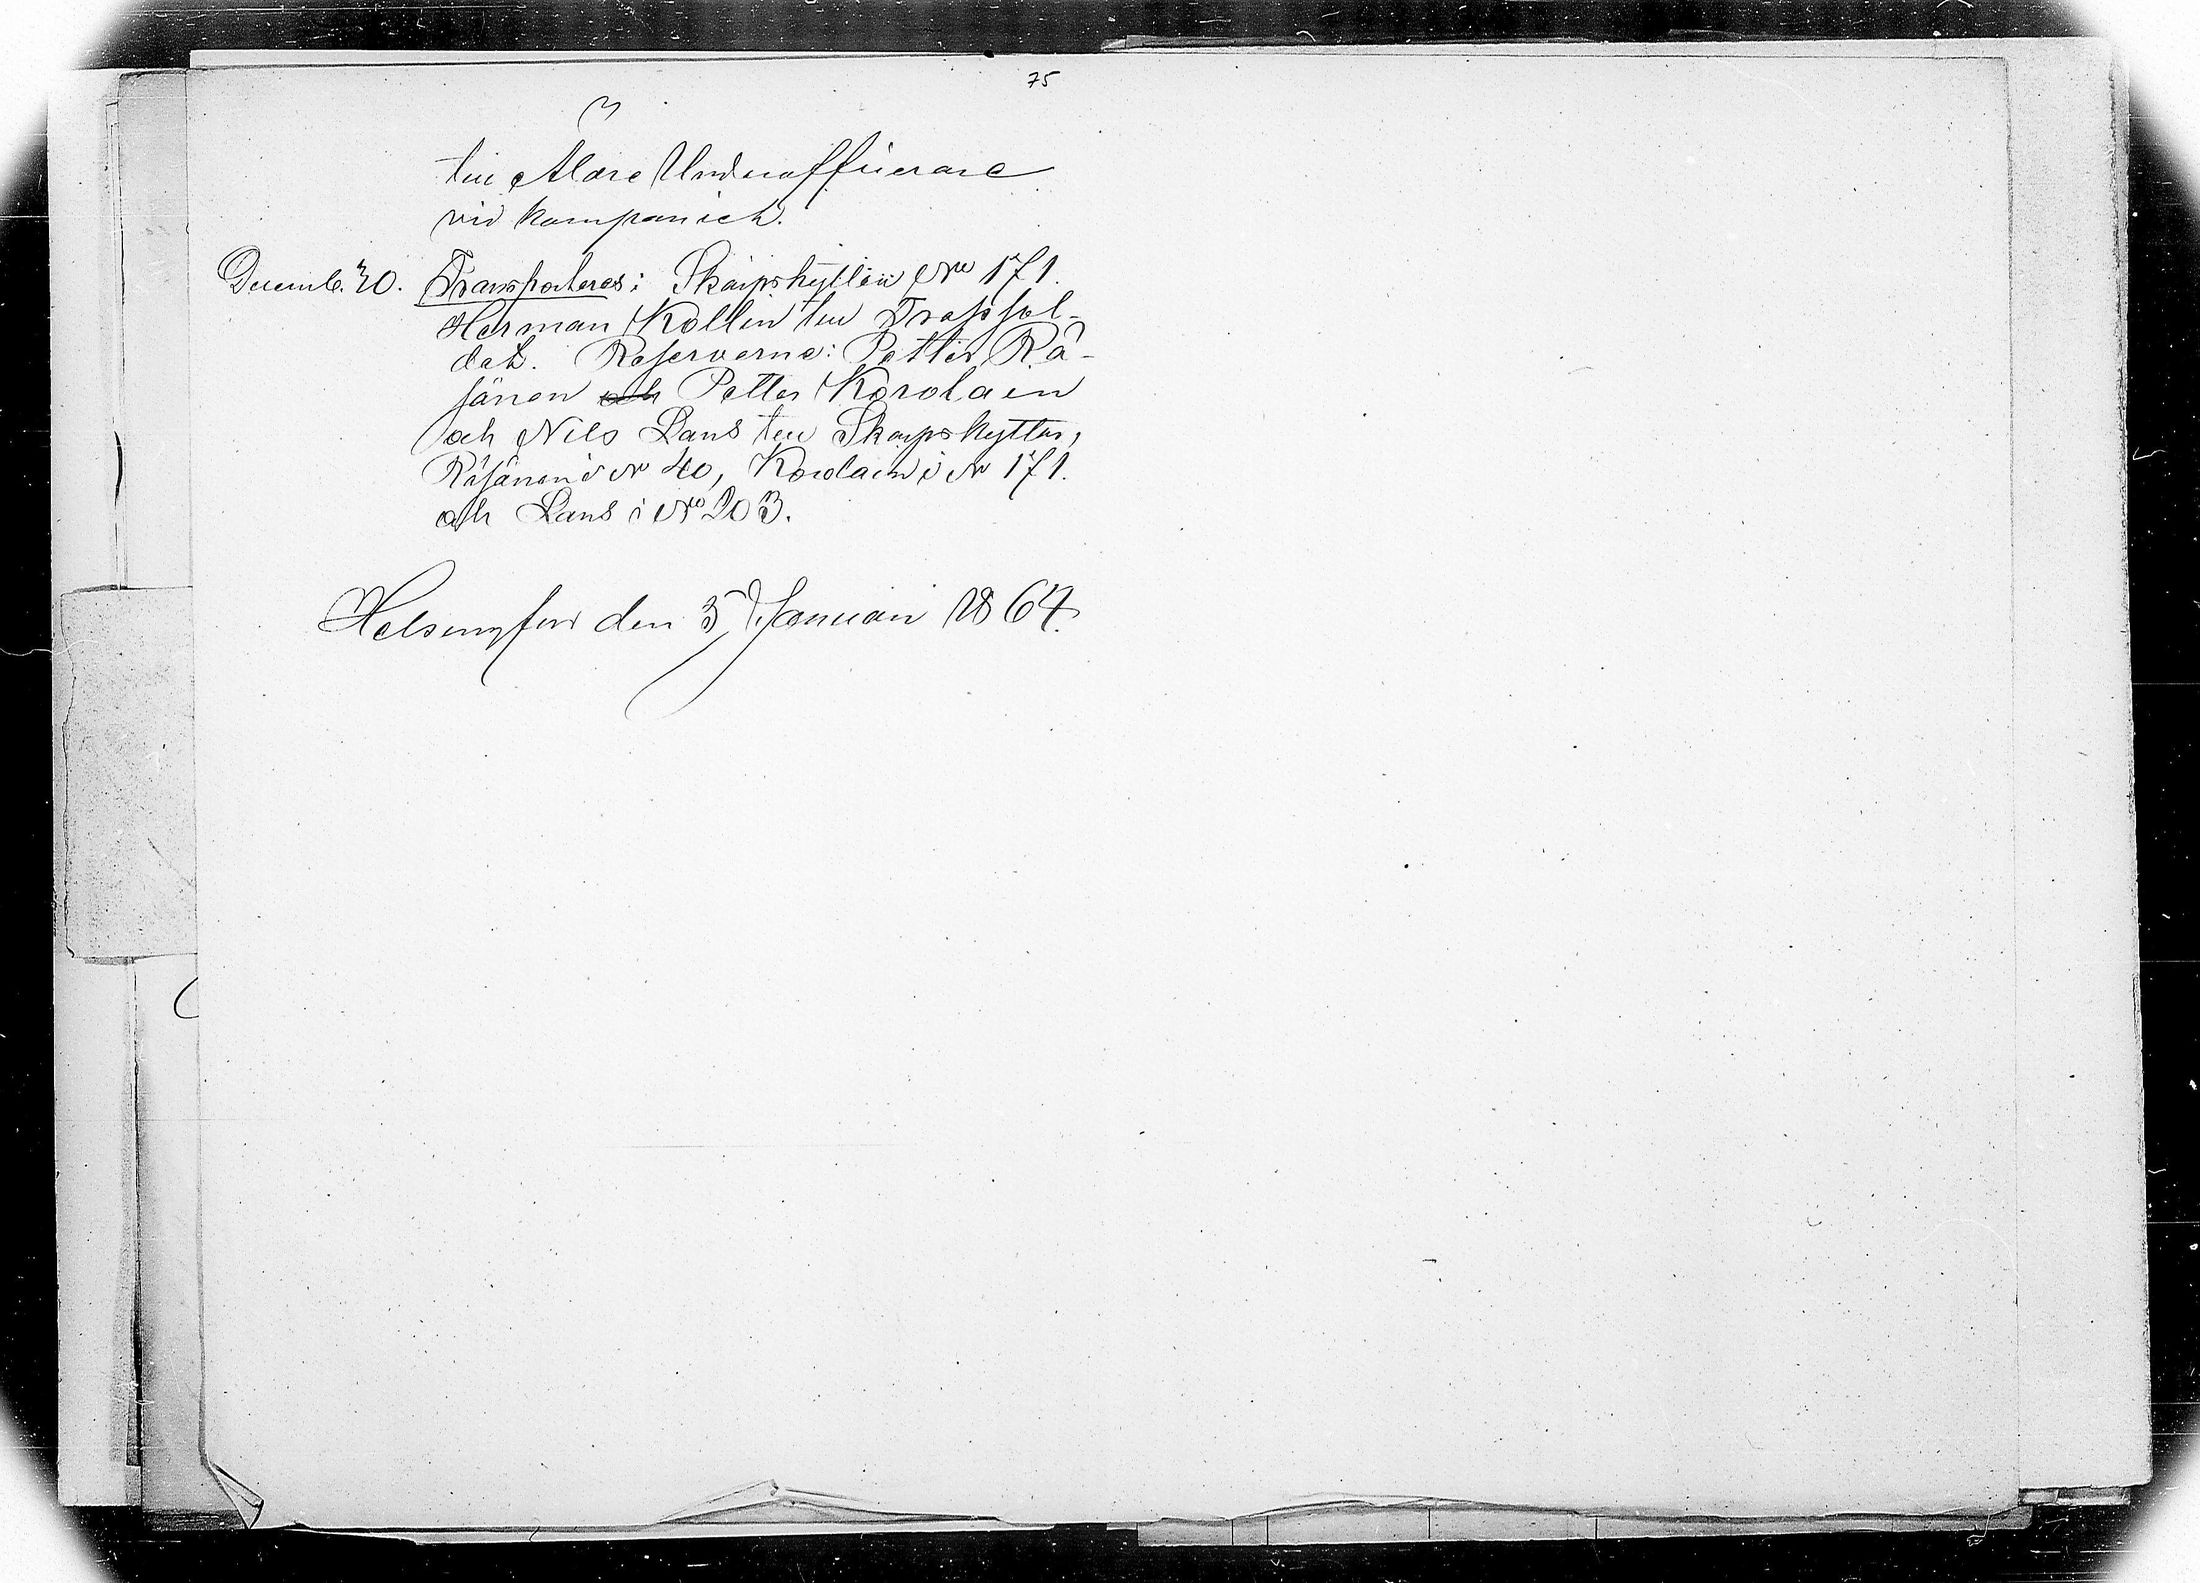 75
till Äldre Underofficerare
vid kompaniet.
Decemb. 30. Transporteras: Skarpskytten No 171.
Herman Kollin till Trossol-
dat. Reserverne: Petter Rä-
sänen och Petter Korolain
och Nils Lans till Skarpskyttar,
Räsänen i No 40, Korolain i No 171.
och Lans i No 203.
Helsingfors den 5 Januari 1864.